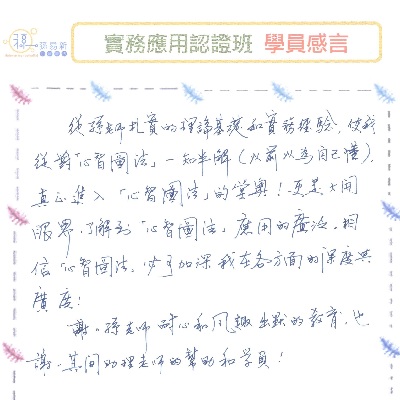 實務應用認證班 學員感言
從孫老師扎實的理論基礎和實務經驗，使我
從對「心智圖法」一知半解（以前以為自己懂），
真正進入「心智圖法」的堂奧！更是大開
眼界，了解到「心智圖法」應用的廣泛，相
信「心智圖法」加深我在各方面的深度與
廣度！
謝謝孫老師耐心和風趣幽默的教育，也
謝謝其間助理老師的幫助和學員！